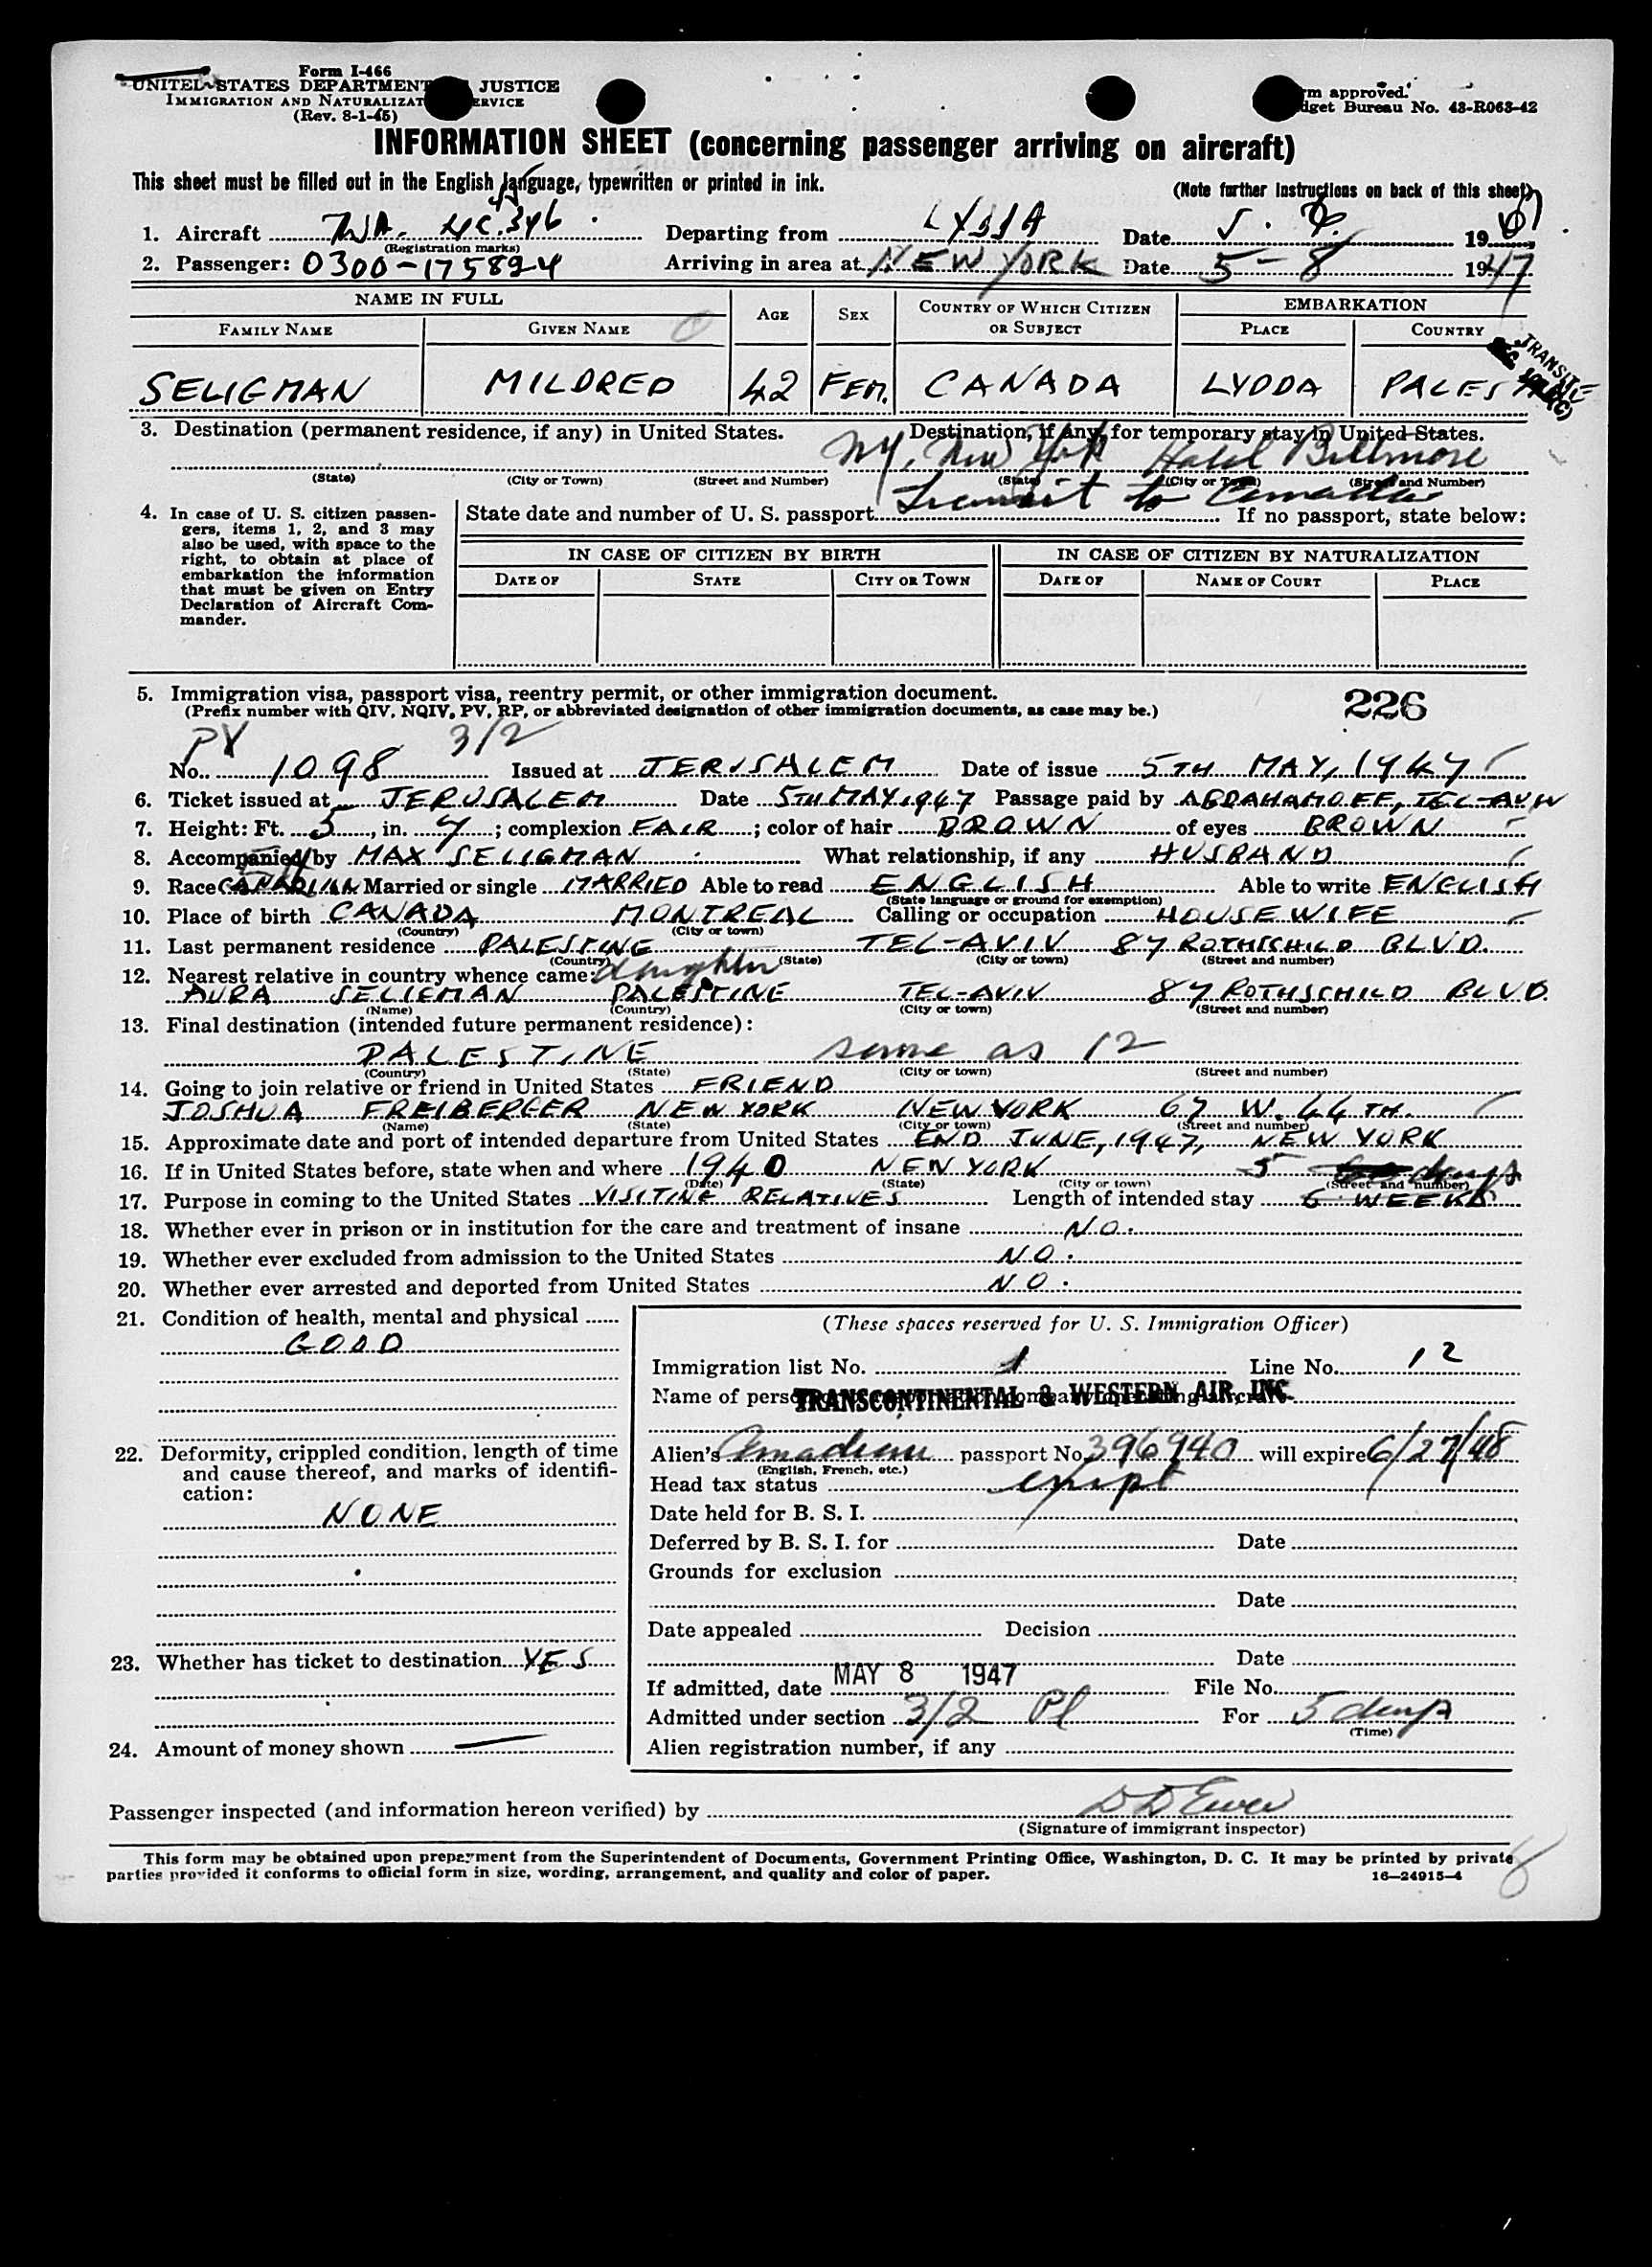 Form I-466
UNITED STATES DEPARTMENT JUSTICE
IMMIGRATION AND NATURALIZAT ERVICE
(Rev. 8-1-45)
rm approved.
dget Bureau No. 43-R063-42
INFORMATION SHEET (concerning passenger arriving on aircraft)
This sheet must be filled out in the English language, typewritten or printed in ink.
(Note further instructions on back of this sheet)
1. Aircraft TWA. 346 Departing from LYDDA Date 5. 19
(Registration marks)
2. Passenger: 0300-175824 Arriving in area at NEW YORK Date 5-8 1947
NAME IN FULL AGE SEX COUNTRY OF WHICH CITIZEN OR SUBJECT EMBARKATION
FAMILY NAME GIVEN NAME PLACE COUNTRY
TRANSIT
SELIGMAN MILDRED 42 FEM. CANADA LYDDA PALESTINE
3. Destination (permanent residence, if any) in United States. Destination, if any, for temporary stay in United States.
NY, New York Hotel Biltmore
(State) (City or Town) (Street and Number) (State) (City or Town) (Street and Number)
Transit to Canada
4. In case of U. S. citizen passengers, items 1, 2, and 3 may also be used, with space to the right, to obtain at place of embarkation the information that must be given on Entry Declaration of Aircraft Commander.
State date and number of U. S. passport If no passport, state below:
IN CASE OF CITIZEN BY BIRTH IN CASE OF CITIZEN BY NATURALIZATION
DATE OF STATE CITY OR TOWN DATE OF NAME OF COURT PLACE
5. Immigration visa, passport visa, reentry permit, or other immigration document.
(Prefix number with QIV, NQIV, PV, RP, or abbreviated designation of other immigration documents, as case may be.)
226
PV 3/2
No. 1098 Issued at JERUSALEM Date of issue 5TH MAY, 1947
6. Ticket issued at JERUSALEM Date 5TH MAY 1947 Passage paid by TEL-AVIV
7. Height: Ft. 5, in. 4; complexion FAIR; color of hair BROWN of eyes BROWN
8. Accompanied by MAX SELIGMAN What relationship, if any HUSBAND
9. Race CANADIAN Married or single MARRIED Able to read ENGLISH Able to write ENGLISH
(State language or ground for exemption)
10. Place of birth CANADA MONTREAL Calling or occupation HOUSEWIFE
(Country) (City or town)
11. Last permanent residence PALESTINE TEL-AVIV 87 ROTHSCHILD BLVD.
(Country) (State) (City or town) (Street and number)
12. Nearest relative in country whence came: daughter
AURA SELIGMAN PALESTINE TEL-AVIV 87 ROTHSCHILD BLVD.
(Name) (Country) (City or town) (Street and number)
13. Final destination (intended future permanent residence):
PALESTINE same as 12
(Country) (State) (City or town) (Street and number)
14. Going to join relative or friend in United States FRIEND
JOSHUA FREIBERGER NEW YORK NEW YORK 67 W. 44 TH.
(Name) (State) (City or town) (Street and number)
15. Approximate date and port of intended departure from United States END JUNE, 1947, NEW YORK
16. If in United States before, state when and where 1940 NEW YORK 5 days
(Date) (State) (City or town) (Street and number)
17. Purpose in coming to the United States VISITING RELATIVES Length of intended stay 6 WEEKS
18. Whether ever in prison or in institution for the care and treatment of insane NO.
19. Whether ever excluded from admission to the United States NO.
20. Whether ever arrested and deported from United States NO.
21. Condition of health, mental and physical
GOOD
22. Deformity, crippled condition, length of time and cause thereof, and marks of identification:
NONE
23. Whether has ticket to destination YES
24. Amount of money shown —
(These spaces reserved for U. S. Immigration Officer)
Immigration list No. 1 Line No. 12
Name of perso
TRANSCONTINENTAL & WESTERN AIR, INC.
Alien's Canadian passport No. 396940 will expire 6/27/48
(English, French, etc.)
Head tax status exmpt
Date held for B. S. I.
Deferred by B. S. I. for Date
Grounds for exclusion
Date
Date appealed Decision
Date
If admitted, date MAY 8 1947 File No.
Admitted under section 3/2 Pl For 5 days
(Time)
Alien registration number, if any
Passenger inspected (and information hereon verified) by
(Signature of immigrant inspector)
This form may be obtained upon prepayment from the Superintendent of Documents, Government Printing Office, Washington, D. C. It may be printed by private
parties provided it conforms to official form in size, wording, arrangement, and quality and color of paper.
16—24915-4